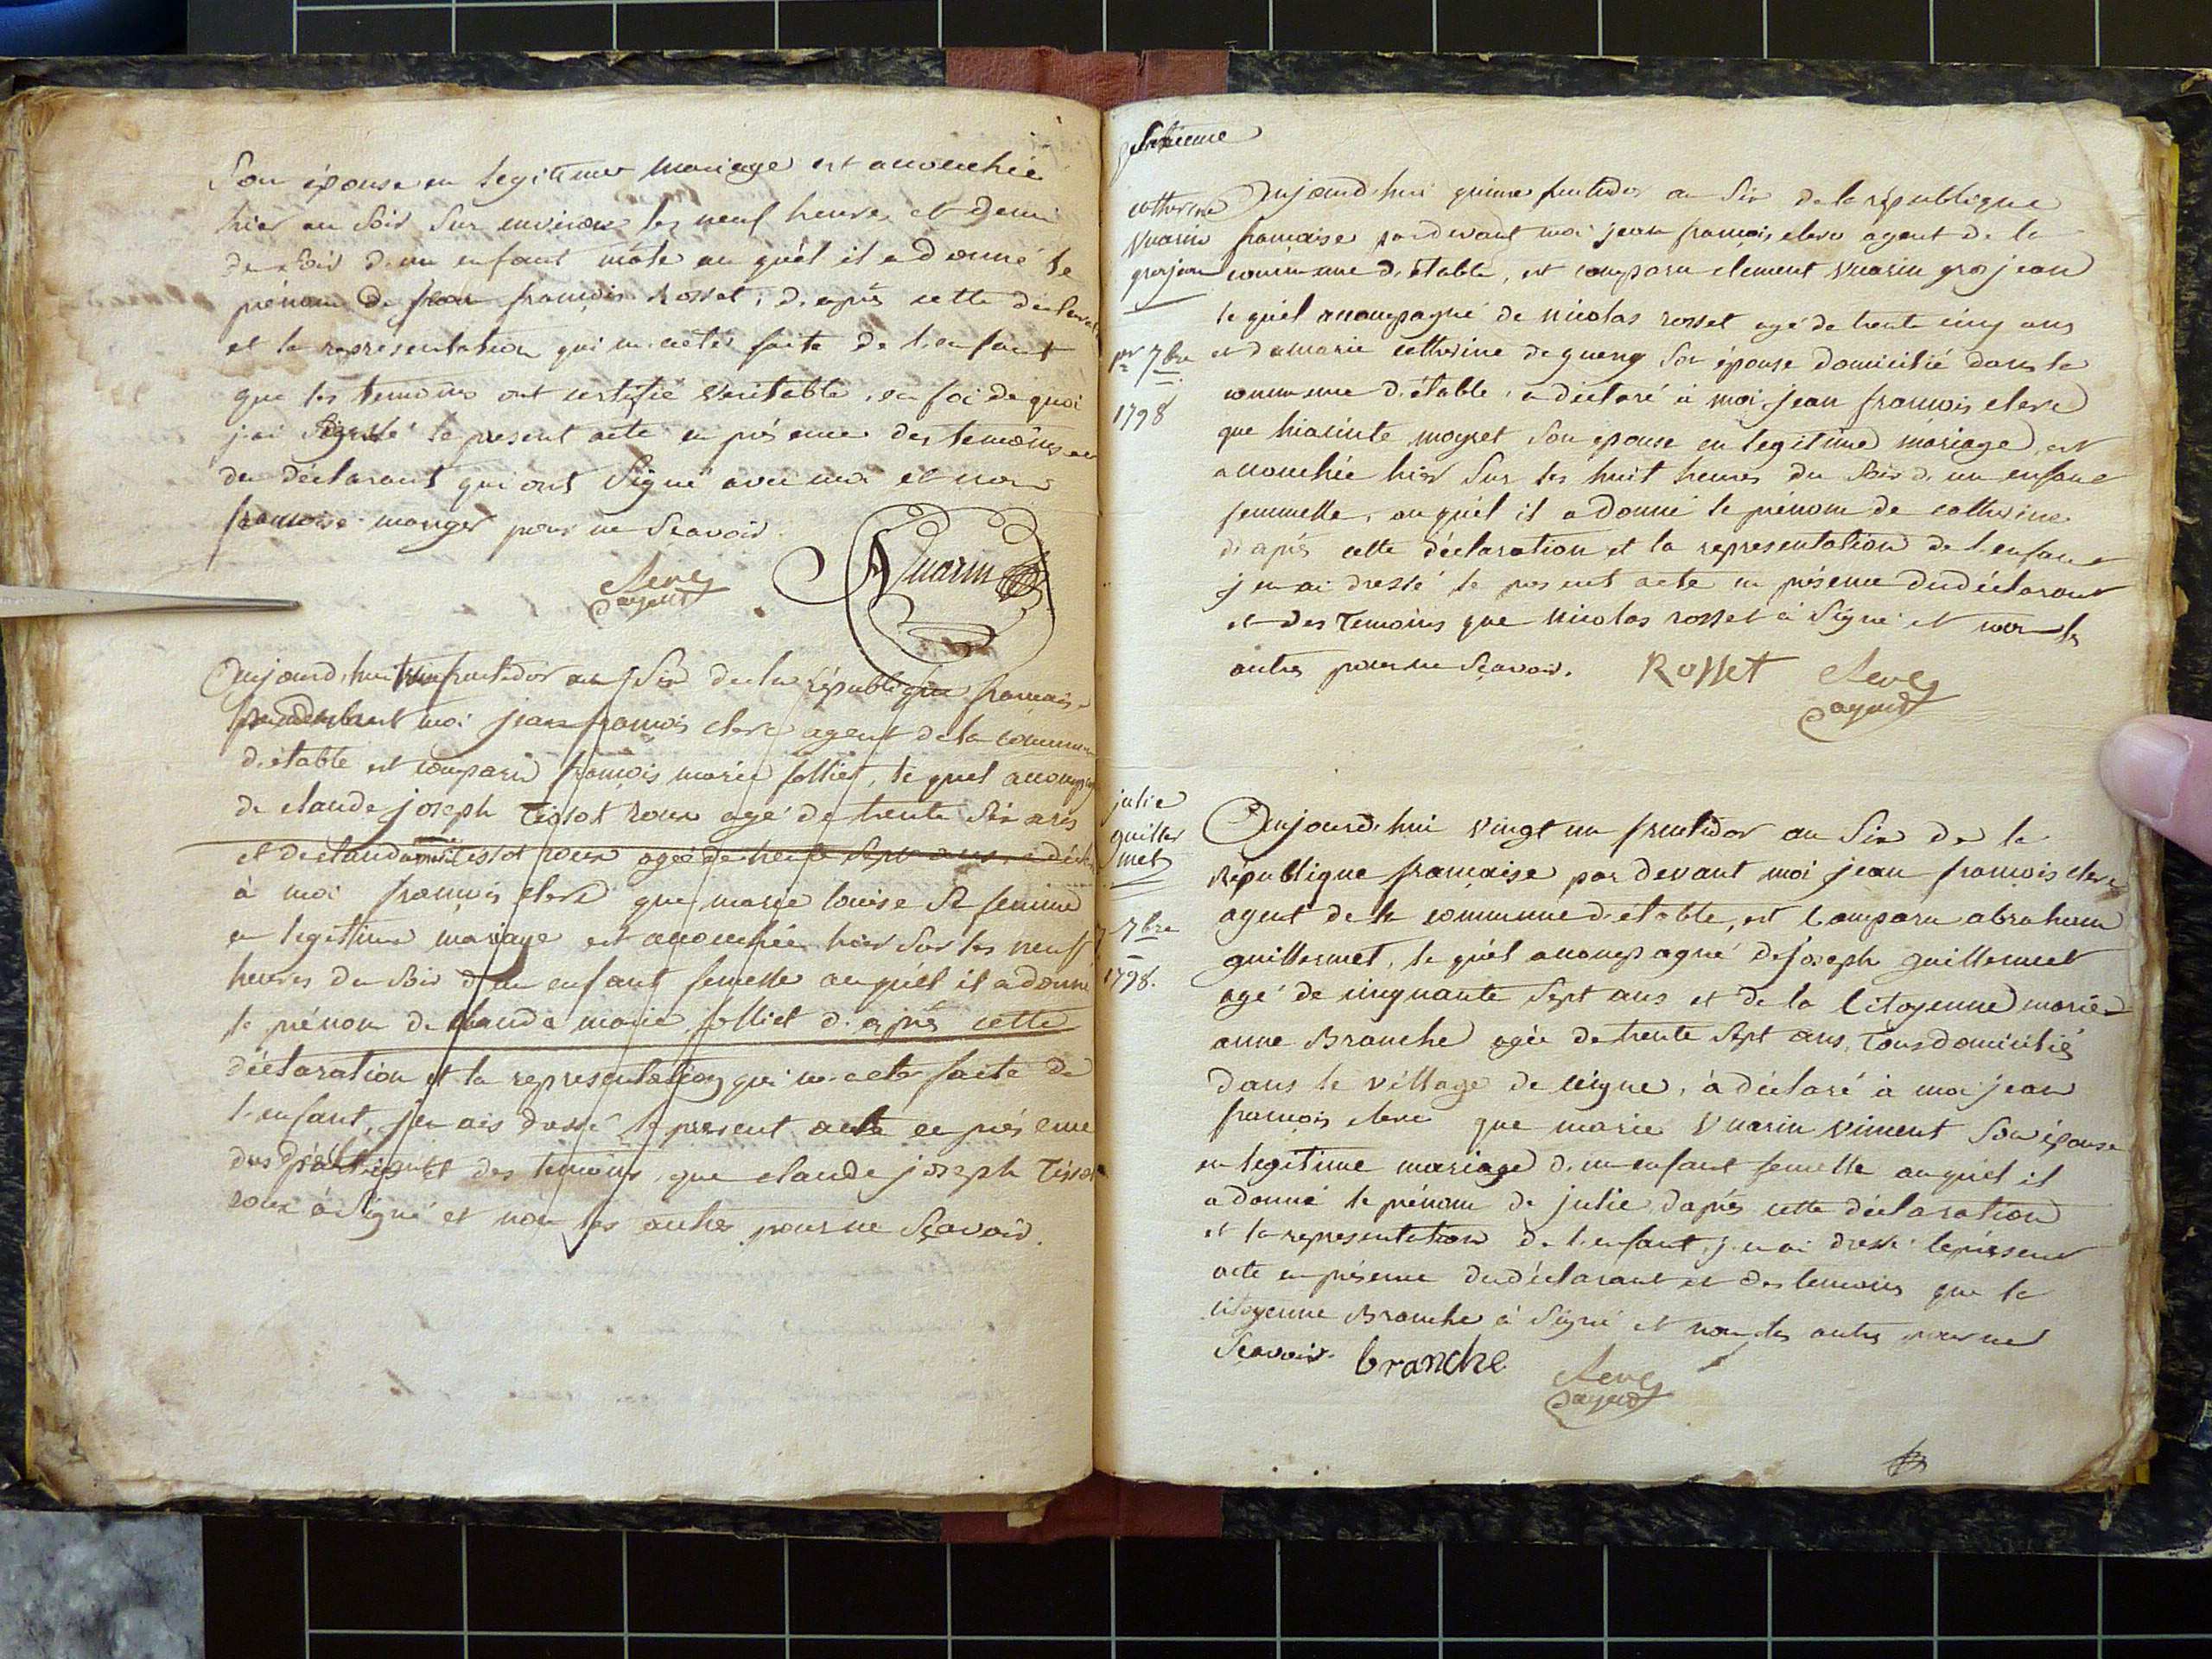 Son épouse en legitimes mariage est accouchée
hier au Soir Sur environ les neuf heures et demi
du Soir d'un enfant mâle au quél il a donné le
prénom de jean françois rosset, d'après cette declarat
et la representation qui m'a étée faite de l'enfant
que les temoins ont certifié veritable, en foi de quoi
j'ai dressé le present acte en présence des temoins et
du déclarant qui ont Signé avec moi et non
francoise monger pour ne Scavoir
Clerc agent
Vuarin
Aujourd'hui fructidor an Six de la république francais
par devant moi jean françois clerc agent de la commune
d'étable est comparu françois marie folliet, le quel accompagné
de claude joseph Tissot roux agé de trente Six ans
et de clauda marie tissot roux agée de trente Sept ans a décl
à moi françois clerc que marie louise Sa femme
en legitime mariage est accouchée hier Sur les neuf
heures du Soir d'un enfant femelle au quél il a donné
le prénom de clauda marie folliet d'après cette
déclaration et la representation qui m'a etée faite de
l'enfant, j'en ais dressé le present acte en présence
des et des temoins, que claude joseph Tissot
roux à Signé et non les autres pour ne Sçavoir.
Septieme
catherine
Vuarin
grosjean
pr 7bre
1798
Aujourd'hui quinze fructidor an Six de la république
francaise par devant moi jean françois clerc agent de la
commune d'étable, est comparu clement Vuarin gros jean
le quél accompagné de nicolas rosset agé de trente cinq ans
et de marie catherine deguerg Son épouse domicilié dans la
commune d'étable, a déclaré à moi jean francois clerc
que hiacinte moyret Son epouse en legitime mariage, est
accouchée hier Sur les huit heures du Soir d'un enfant
femmelle, au quél il a donné le prénom de catherine
d'après cette déclaration et la representation de l'enfant
j'en ai dressé le present acte en présence du déclarant
et des Temoins que Nicolas rosset à Signé et non les
autres pour ne Sçavoir. Rosset Clerc agent
julie
guiller
met
7 7bre
1798.
Aujourd'hui vingt un fructidor an Six de la
République française par devant moi jean françois clerc
agent de la commune d'étable, est Comparu abraham
guillermet, le quél accompagné de joseph guillermet
agé de cinquante Sept ans et de la Citoyenne marie
anne Branche agée de trente Sept ans, Tous domiciliés
dans le village de cigne, à déclaré à moi jean
françois clerc que marie Vuarin viment Son épouse
en legitime mariage d'un enfant femelle au quél il
a donné le prénom de julie, d'après cette déclaration
et la representation de l'enfant, j'en ai dressé le présent
acte en présence du déclarant et des temoins que la
citoyenne Branche à Signé et non les autres pour ne
Sçavoir. branche Clerc agent